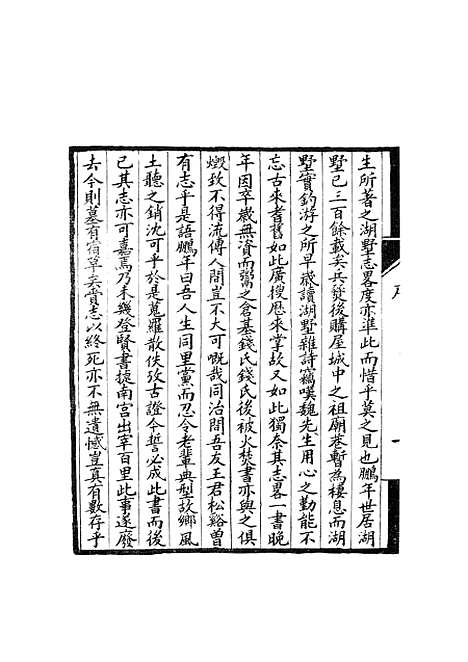 生所著之湖墅志畧度亦準此而惜乎莫之見也鵬年世居湖
墅已三百餘載矣兵燹後購屋城中之祖廟巷暫為棲息而湖
墅實釣游之所早歲讀湖墅雜詩竊嘆魏先生用心之勤能不
忘古來耆舊如此廣搜歷來掌故又如此獨奈其志畧一書晚
年因卒歲無資而鬻之倉基錢氏錢氏後被火焚書亦與之俱
燬致不得流傳人間豈不大可嘅哉同治間吾友王君松谿曾
有志乎是語鵬年曰吾人生同里黨而忍令老輩典型故鄉風
土聽之銷沈可乎於是蒐羅散佚攷古證今誓必成此書而後
已其志亦可嘉焉乃未幾登賢書捷南宫出宰百里此事遂廢
去今則墓有宿草矣賫志以終死亦不無遺憾豈真有數存乎
序
一